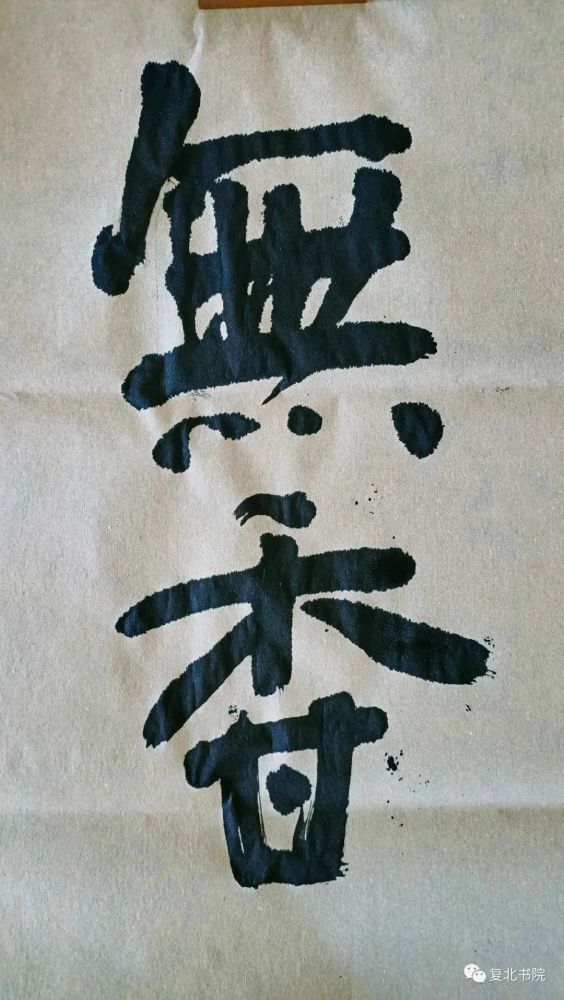 無香
复北书院